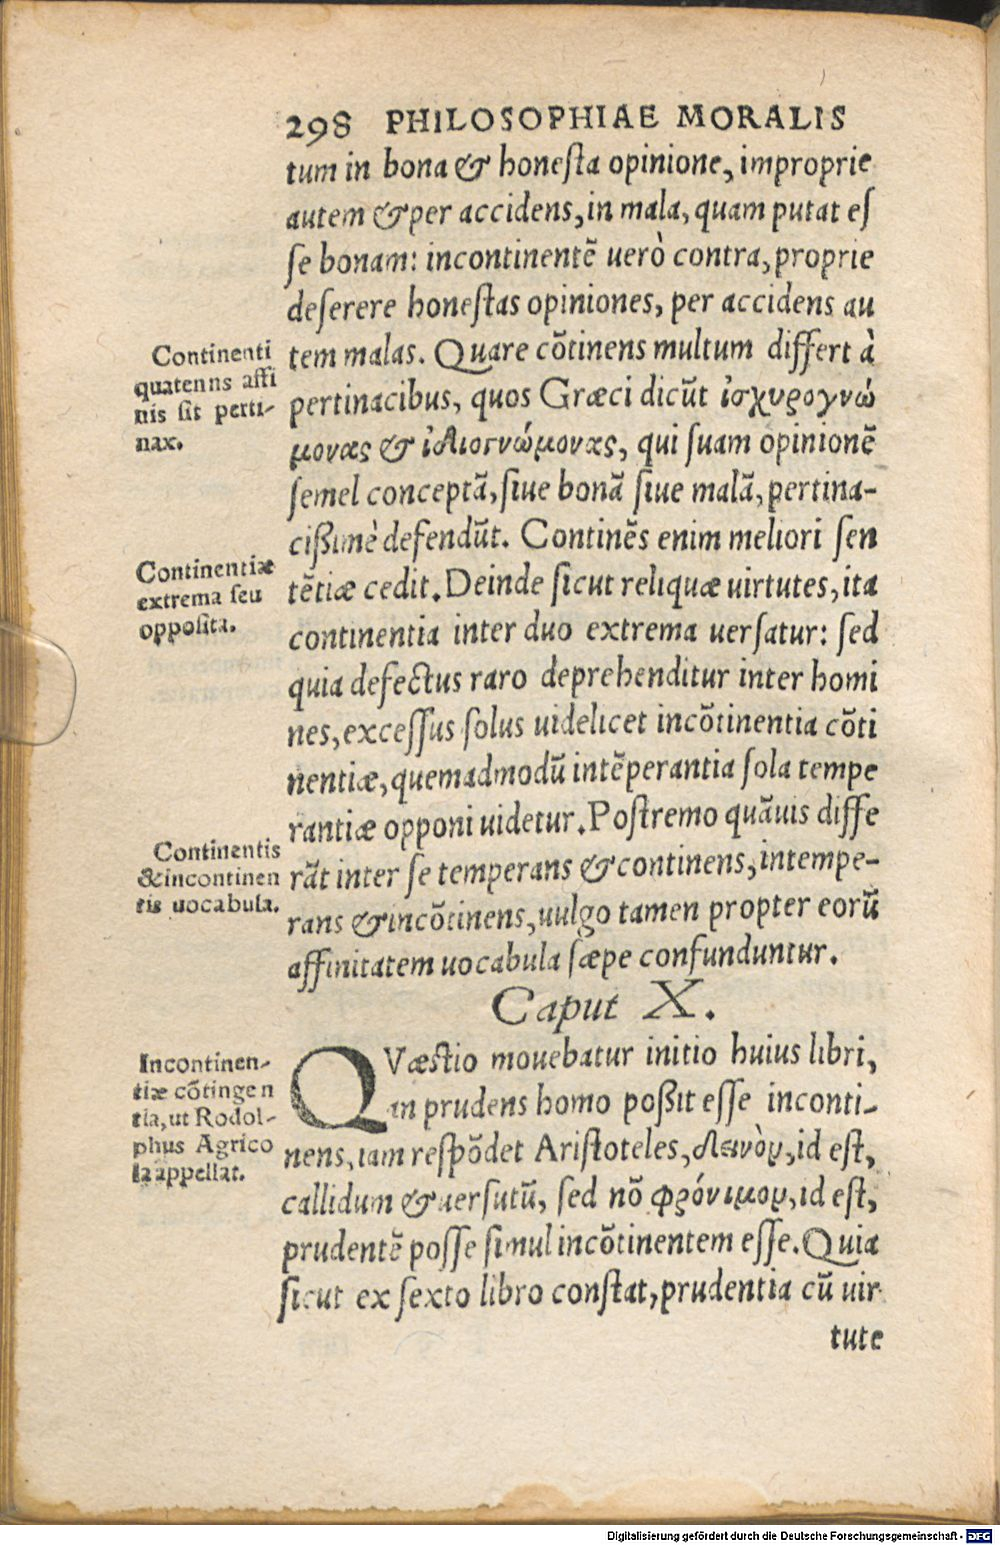 298 PHILOSOPHIAE MORALIS
tum in bona & honeſta opinione, improprie
autem & per accidens, in mala, quam putat eſ
ſe bonam: incontinentē uerò contra, proprie
deſerere honeſtas opiniones, per accidens au
tem malas. Quare cōtinens multum differt à
pertinacibus, quos Græci dicūt ἰσχυρογνώ
μονας & ἰδιογνώμονας, qui ſuam opinionē
ſemel conceptā, ſiue bonā ſiue malā, pertina-
cißimè defendūt. Continēs enim meliori ſen
tētiæ cedit. Deinde ſicut reliquæ uirtutes, ita
continentia inter duo extrema uerſatur: ſed
quia defectus raro deprehenditur inter homi
nes, exceſſus ſolus uidelicet incōtinentia cōti
nentiæ, quemadmodū intēperantia ſola tempe
rantiæ opponi uidetur. Poſtremo quāuis diffe
rāt inter ſe temperans & continens, intempe-
rans & incōtinens, uulgo tamen propter eorū
affinitatem uocabula ſæpe confunduntur.
Continenti
quatenns affi
nis ſit perti-
nax.
Continentiæ
extrema ſeu
oppoſita.
Continentis
& incontinen
tis uocabula.
Caput X.
QVæſtio mouebatur initio huius libri,
an prudens homo poßit eſſe inconti-
nens, iam reſpōdet Ariſtoteles, δεινὸν, id eſt,
callidum & uerſutū, ſed nō φρόνιμον, id eſt,
prudentē poſſe ſimul incōtinentem eſſe. Quia
ſicut ex ſexto libro conſtat, prudentia cū uir
tute
Incontinen-
tiæ cōtingen
tia, ut Rodol-
phus Agrico
la appellat.
Digitalisierung gefördert durch die Deutsche Forschungsgemeinschaft - DFG